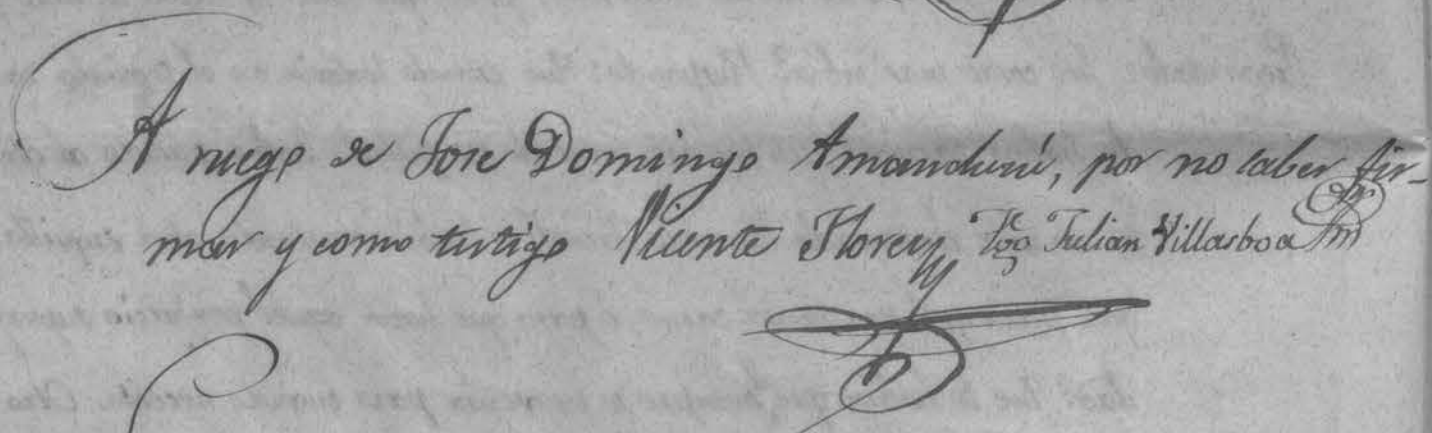 A ruego de Jose Domingo Amandurú, por no saber fir-
mar y como testigo Vicente Florez Tgo Julian Villasboa